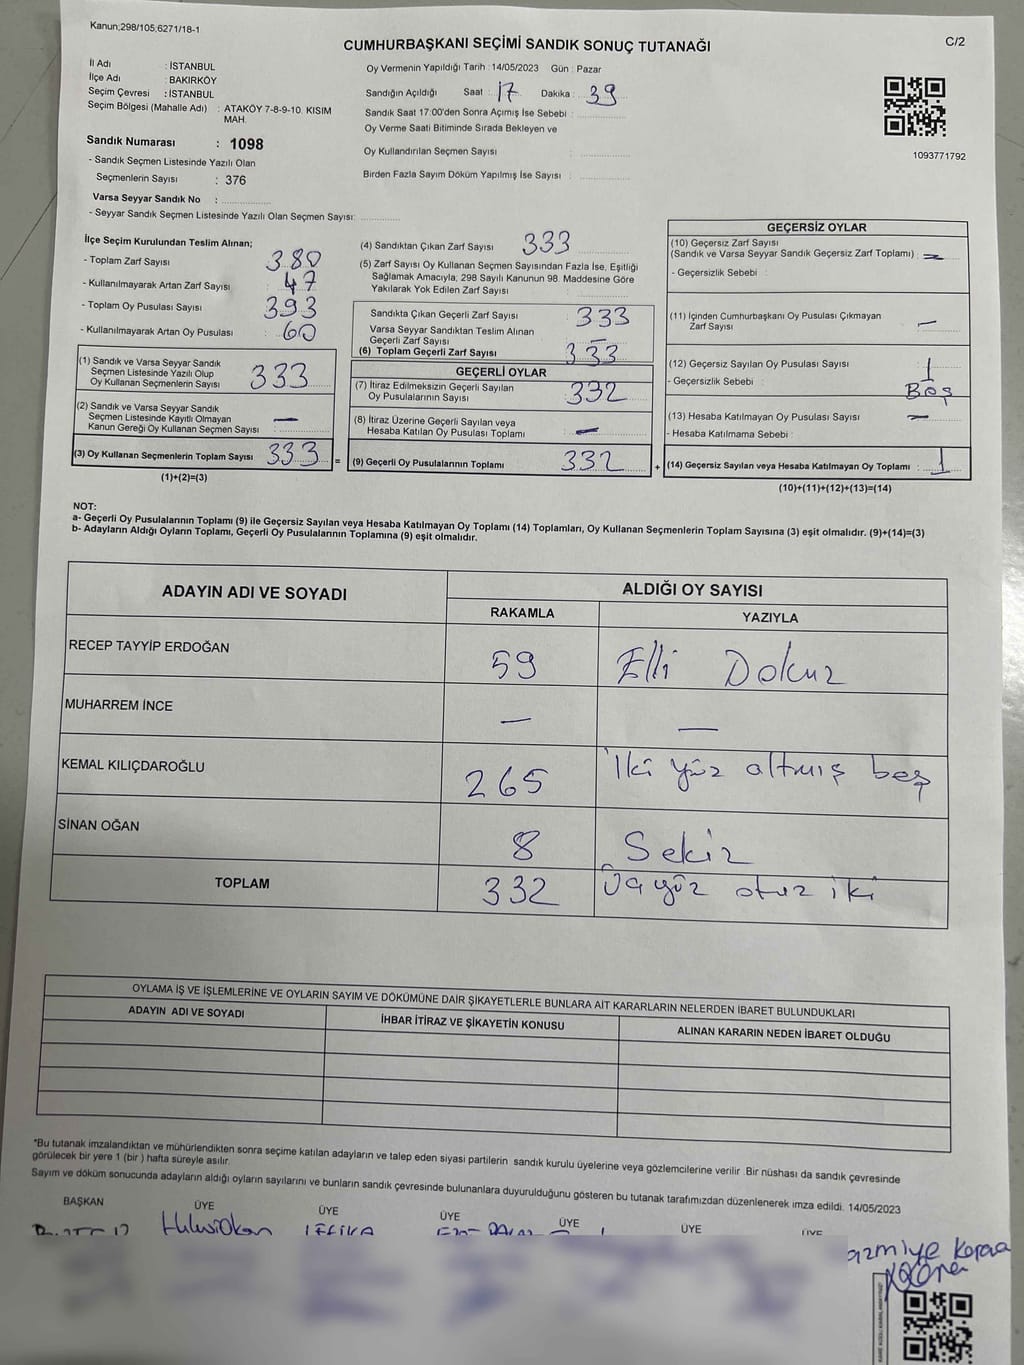 Kanun;298/105;6271/18-1
C/2
CUMHURBAŞKANI SEÇİMİ SANDIK SONUÇ TUTANAĞI
İl Adı : İSTANBUL
İlçe Adı : BAKIRKÖY
Seçim Çevresi : İSTANBUL
Seçim Bölgesi (Mahalle Adı) : ATAKÖY 7-8-9-10. KISIM
MAH.
Sandık Numarası : 1098
- Sandık Seçmen Listesinde Yazılı Olan
Seçmenlerin Sayısı : 376
Varsa Seyyar Sandık No :
- Seyyar Sandık Seçmen Listesinde Yazılı Olan Seçmen Sayısı:
Oy Vermenin Yapıldığı Tarih : 14/05/2023 Gün : Pazar
Sandığın Açıldığı Saat : 17 Dakika : 39
Sandık Saat 17:00'den Sonra Açımış İse Sebebi :
Oy Verme Saati Bitiminde Sırada Bekleyen ve
Oy Kullandırılan Seçmen Sayısı :
Birden Fazla Sayım Döküm Yapılmış İse Sayısı :
1093771792
İlçe Seçim Kurulundan Teslim Alınan;
- Toplam Zarf Sayısı : 380
- Kullanılmayarak Artan Zarf Sayısı : 47
- Toplam Oy Pusulası Sayısı : 393
- Kullanılmayarak Artan Oy Pusulası : 60
(1) Sandık ve Varsa Seyyar Sandık
Seçmen Listesinde Yazılı Olup
Oy Kullanan Seçmenlerin Sayısı : 333
(2) Sandık ve Varsa Seyyar Sandık
Seçmen Listesinde Kayıtlı Olmayan
Kanun Gereği Oy Kullanan Seçmen Sayısı : —
(3) Oy Kullanan Seçmenlerin Toplam Sayısı 333 =
(1)+(2)=(3)
(4) Sandıktan Çıkan Zarf Sayısı 333
(5) Zarf Sayısı Oy Kullanan Seçmen Sayısından Fazla İse, Eşitliği
Sağlamak Amacıyla; 298 Sayılı Kanunun 98. Maddesine Göre
Yakılarak Yok Edilen Zarf Sayısı :
Sandıkta Çıkan Geçerli Zarf Sayısı : 333
Varsa Seyyar Sandıktan Teslim Alınan
Geçerli Zarf Sayısı : —
(6) Toplam Geçerli Zarf Sayısı 333
GEÇERLİ OYLAR
(7) İtiraz Edilmeksizin Geçerli Sayılan
Oy Pusulalarının Sayısı 332
(8) İtiraz Üzerine Geçerli Sayılan veya
Hesaba Katılan Oy Pusulası Toplamı : —
(9) Geçerli Oy Pusulalarının Toplamı 332 +
GEÇERSİZ OYLAR
(10) Geçersiz Zarf Sayısı
(Sandık ve Varsa Seyyar Sandık Geçersiz Zarf Toplamı) : —
- Geçersizlik Sebebi :
(11) İçinden Cumhurbaşkanı Oy Pusulası Çıkmayan
Zarf Sayısı : —
(12) Geçersiz Sayılan Oy Pusulası Sayısı : 1
- Geçersizlik Sebebi : Boş
(13) Hesaba Katılmayan Oy Pusulası Sayısı : —
- Hesaba Katılmama Sebebi :
(14) Geçersiz Sayılan veya Hesaba Katılmayan Oy Toplamı : 1
(10)+(11)+(12)+(13)=(14)
NOT:
a- Geçerli Oy Pusulalarının Toplamı (9) ile Geçersiz Sayılan veya Hesaba Katılmayan Oy Toplamı (14) Toplamları, Oy Kullanan Seçmenlerin Toplam Sayısına (3) eşit olmalıdır. (9)+(14)=(3)
b- Adayların Aldığı Oyların Toplamı, Geçerli Oy Pusulalarının Toplamına (9) eşit olmalıdır.
ADAYIN ADI VE SOYADI ALDIĞI OY SAYISI
RAKAMLA YAZIYLA
RECEP TAYYİP ERDOĞAN 59 Elli Dokuz
MUHARREM İNCE — —
KEMAL KILIÇDAROĞLU 265 İki yüz altmış beş
SİNAN OĞAN 8 Sekiz
TOPLAM 332 Üç yüz otuz iki
OYLAMA İŞ VE İŞLEMLERİNE VE OYLARIN SAYIM VE DÖKÜMÜNE DAİR ŞİKAYETLERLE BUNLARA AİT KARARLARIN NELERDEN İBARET BULUNDUKLARI
ADAYIN ADI VE SOYADI İHBAR İTİRAZ VE ŞİKAYETİN KONUSU ALINAN KARARIN NEDEN İBARET OLDUĞU
*Bu tutanak imzalandıktan ve mühürlendikten sonra seçime katılan adayların ve talep eden siyasi partilerin sandık kurulu üyelerine veya gözlemcilerine verilir Bir nüshası da sandık çevresinde
görülecek bir yere 1 (bir ) hafta süreyle asılır.
Sayım ve döküm sonucunda adayların aldığı oyların sayılarını ve bunların sandık çevresinde bulunanlara duyurulduğunu gösteren bu tutanak tarafımızdan düzenlenerek imza edildi. 14/05/2023
BAŞKAN ÜYE ÜYE ÜYE ÜYE ÜYE ÜYE